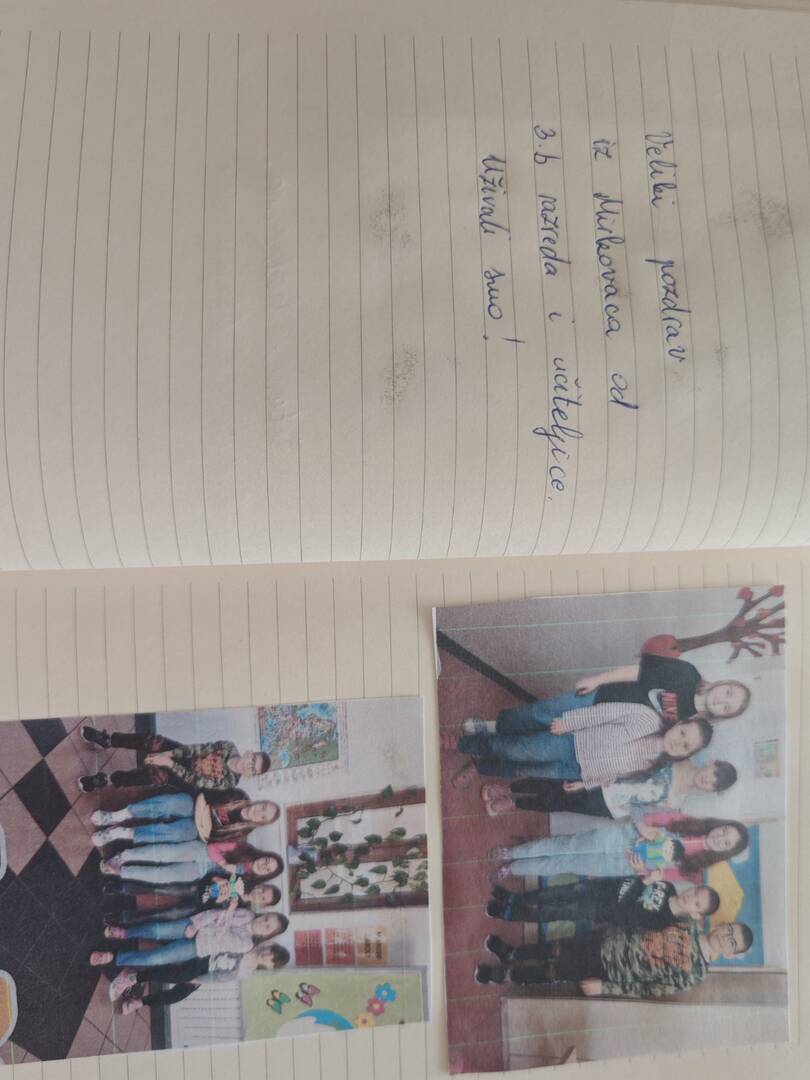 Veliki pozdrav
iz Mirkovaca od
3.b razreda i učiteljice.
Uživali smo!
NIKE